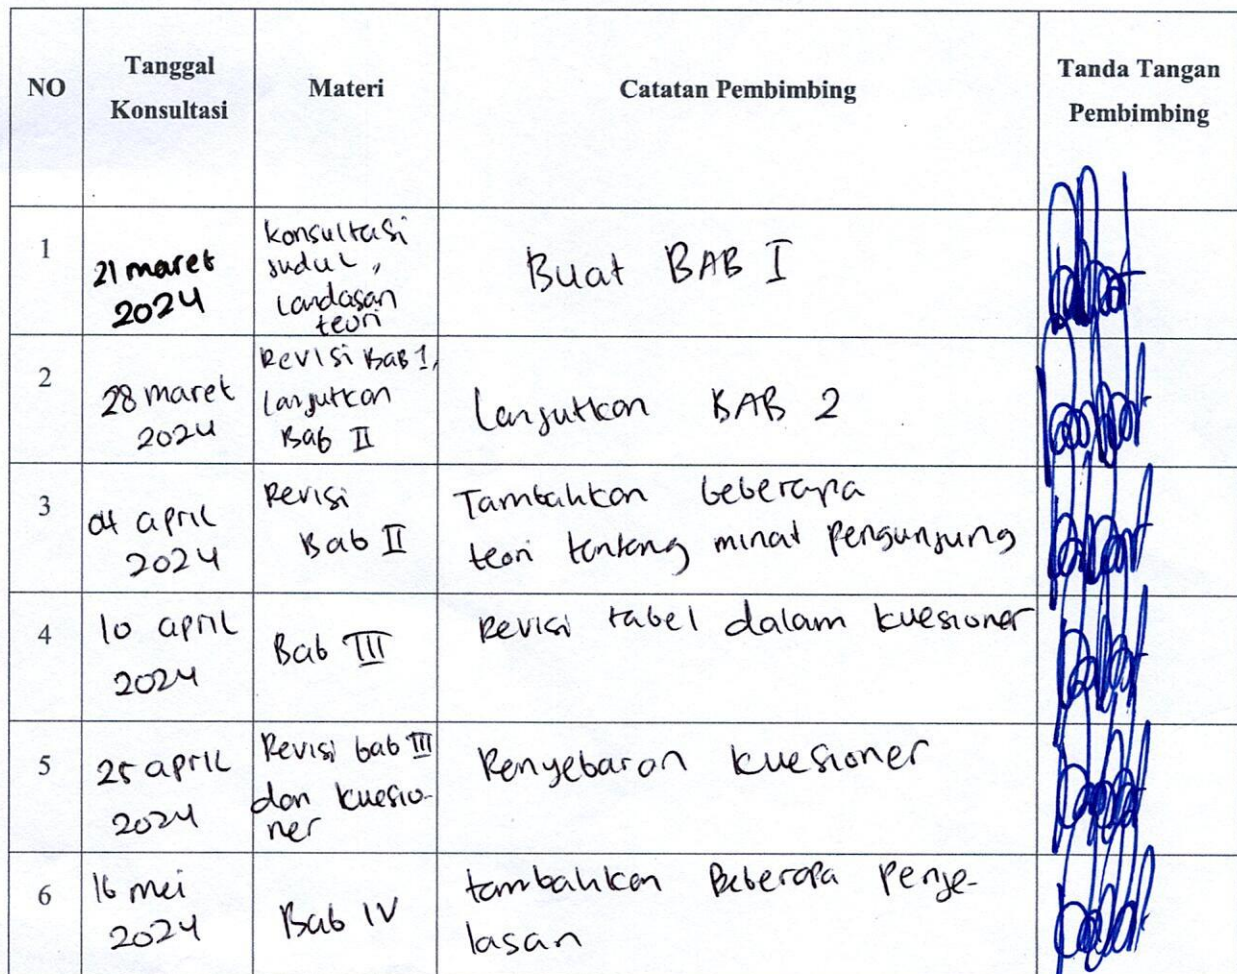 NO
Tanggal Konsultasi
Materi
Catatan Pembimbing
Tanda Tangan Pembimbing
1
21 maret
2024
konsultasi
judul,
landasan
teori
Buat BAB I
2
28 maret
2024
Revisi Bab 1,
lanjutkan
Bab II
Lanjutkan BAB 2
3
04 april
2024
Revisi
Bab II
Tambahkan beberapa
teori tentang minat pengunjung
4
10 april
2024
Bab III
Revisi tabel dalam kuesioner
5
25 april
2024
Revisi bab III
dan kuesio-
ner
Penyebaran kuesioner
6
16 mei
2024
Bab IV
tambahkan Beberapa penje-
lasan